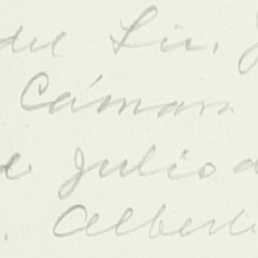 del Lic. J
Cámara
de Julio d
. Alberto